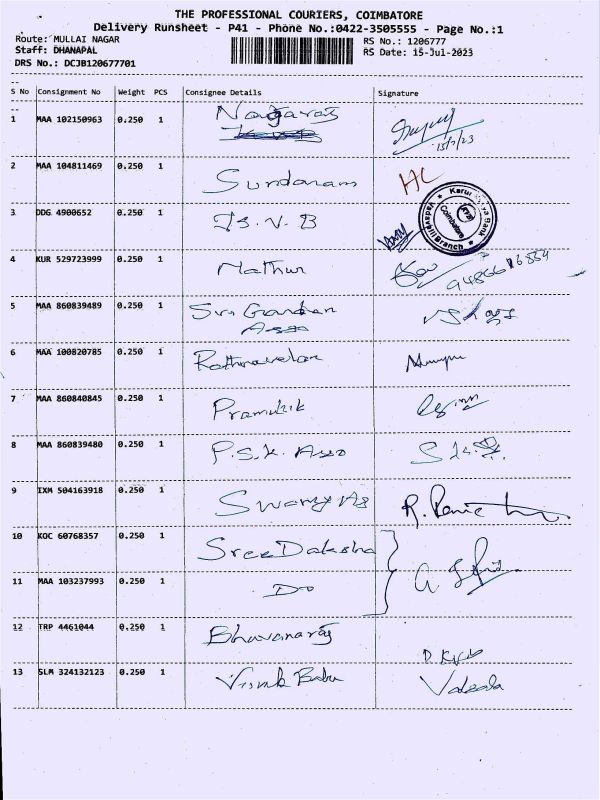 THE PROFESSIONAL COURIERS, COIMBATORE
Delivery Runsheet - P41 - Phone No.:0422-3505555 - Page No.:1
Route: MULLAI NAGAR RS No.: 1206777
Staff: DHANAPAL RS Date: 15-Jul-2023
DRS No.: DCJB120677701
S No Consignment No Weight PCS Consignee Details Signature
1 MAA 102150963 0.250 1 Nagaraj
15/7/23
2 MAA 104811469 0.250 1 Sundaram HC
3 DDG 4900652 0.250 1 K.V.B
Karur Vysya Bank
Coimbatore
Vadavalli Branch
4 KUR 529723999 0.250 1 Mathur
5 MAA 860839489 0.250 1 Sri Gardhan
Asso
6 MAA 100820785 0.250 1 Rathnavelan
7 MAA 860840845 0.250 1 Pramukik
8 MAA 860839480 0.250 1 P.S.K. Asso
9 IXM 504163918 0.250 1 Swamy As
10 KOC 60768357 0.250 1 Sree Daksha
11 MAA 103237993 0.250 1 Do
12 TRP 4461044 0.250 1 Bhavanaraj
13 SLM 324132123 0.250 1 Babu